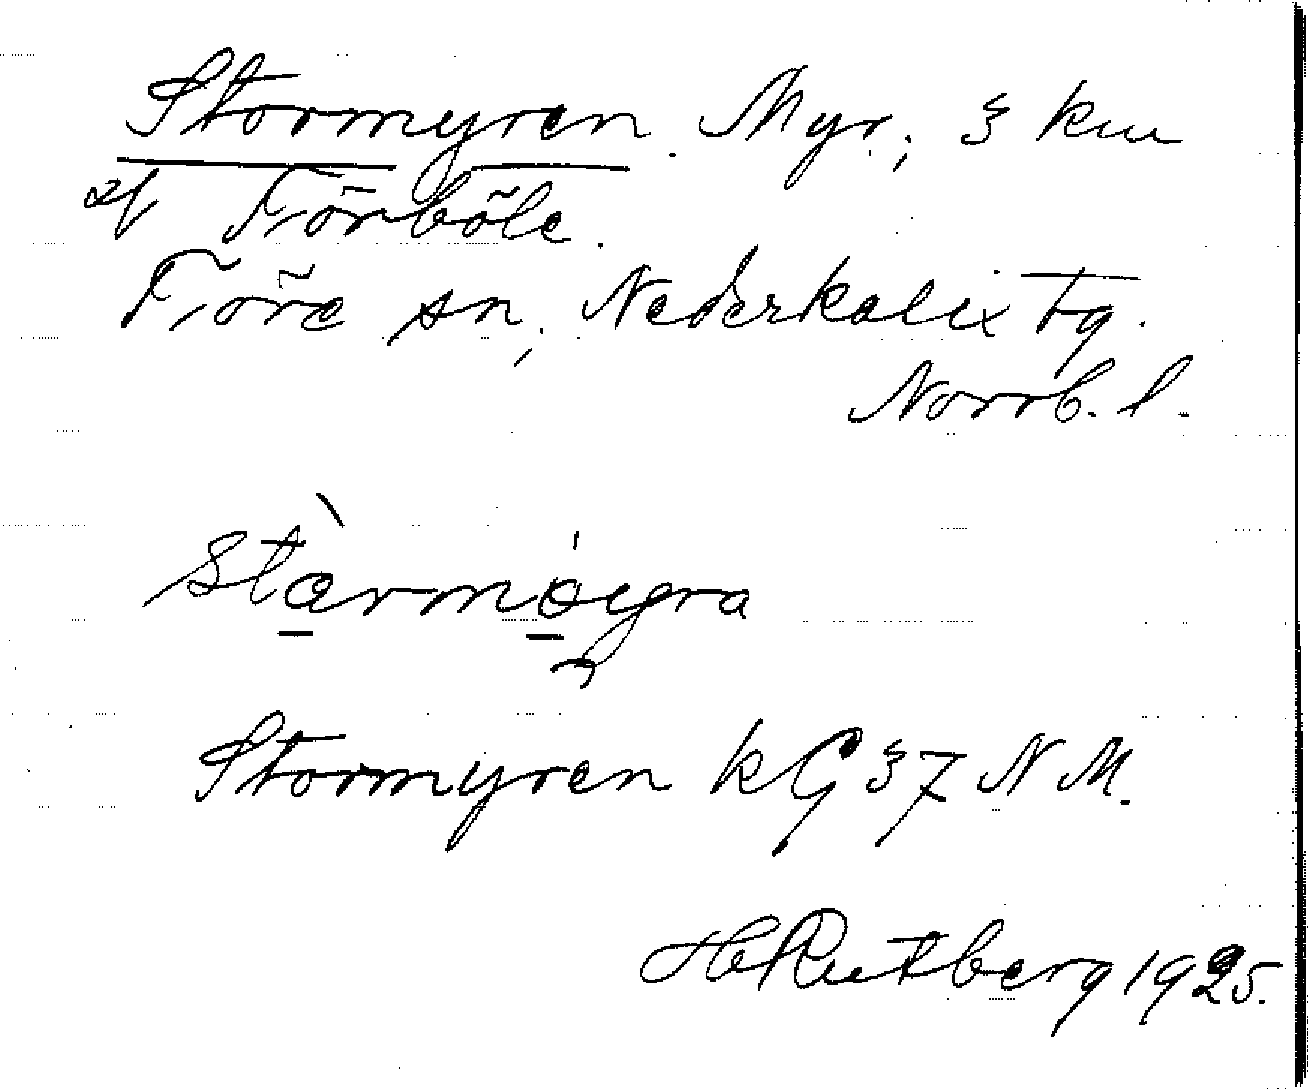 Stormyren. Myr; 3 km
af Törböle.
Töre sn, Nederkalix tg.
Norrb. l.
Stormyren kG 37 N M.
H Rutberg 1925.